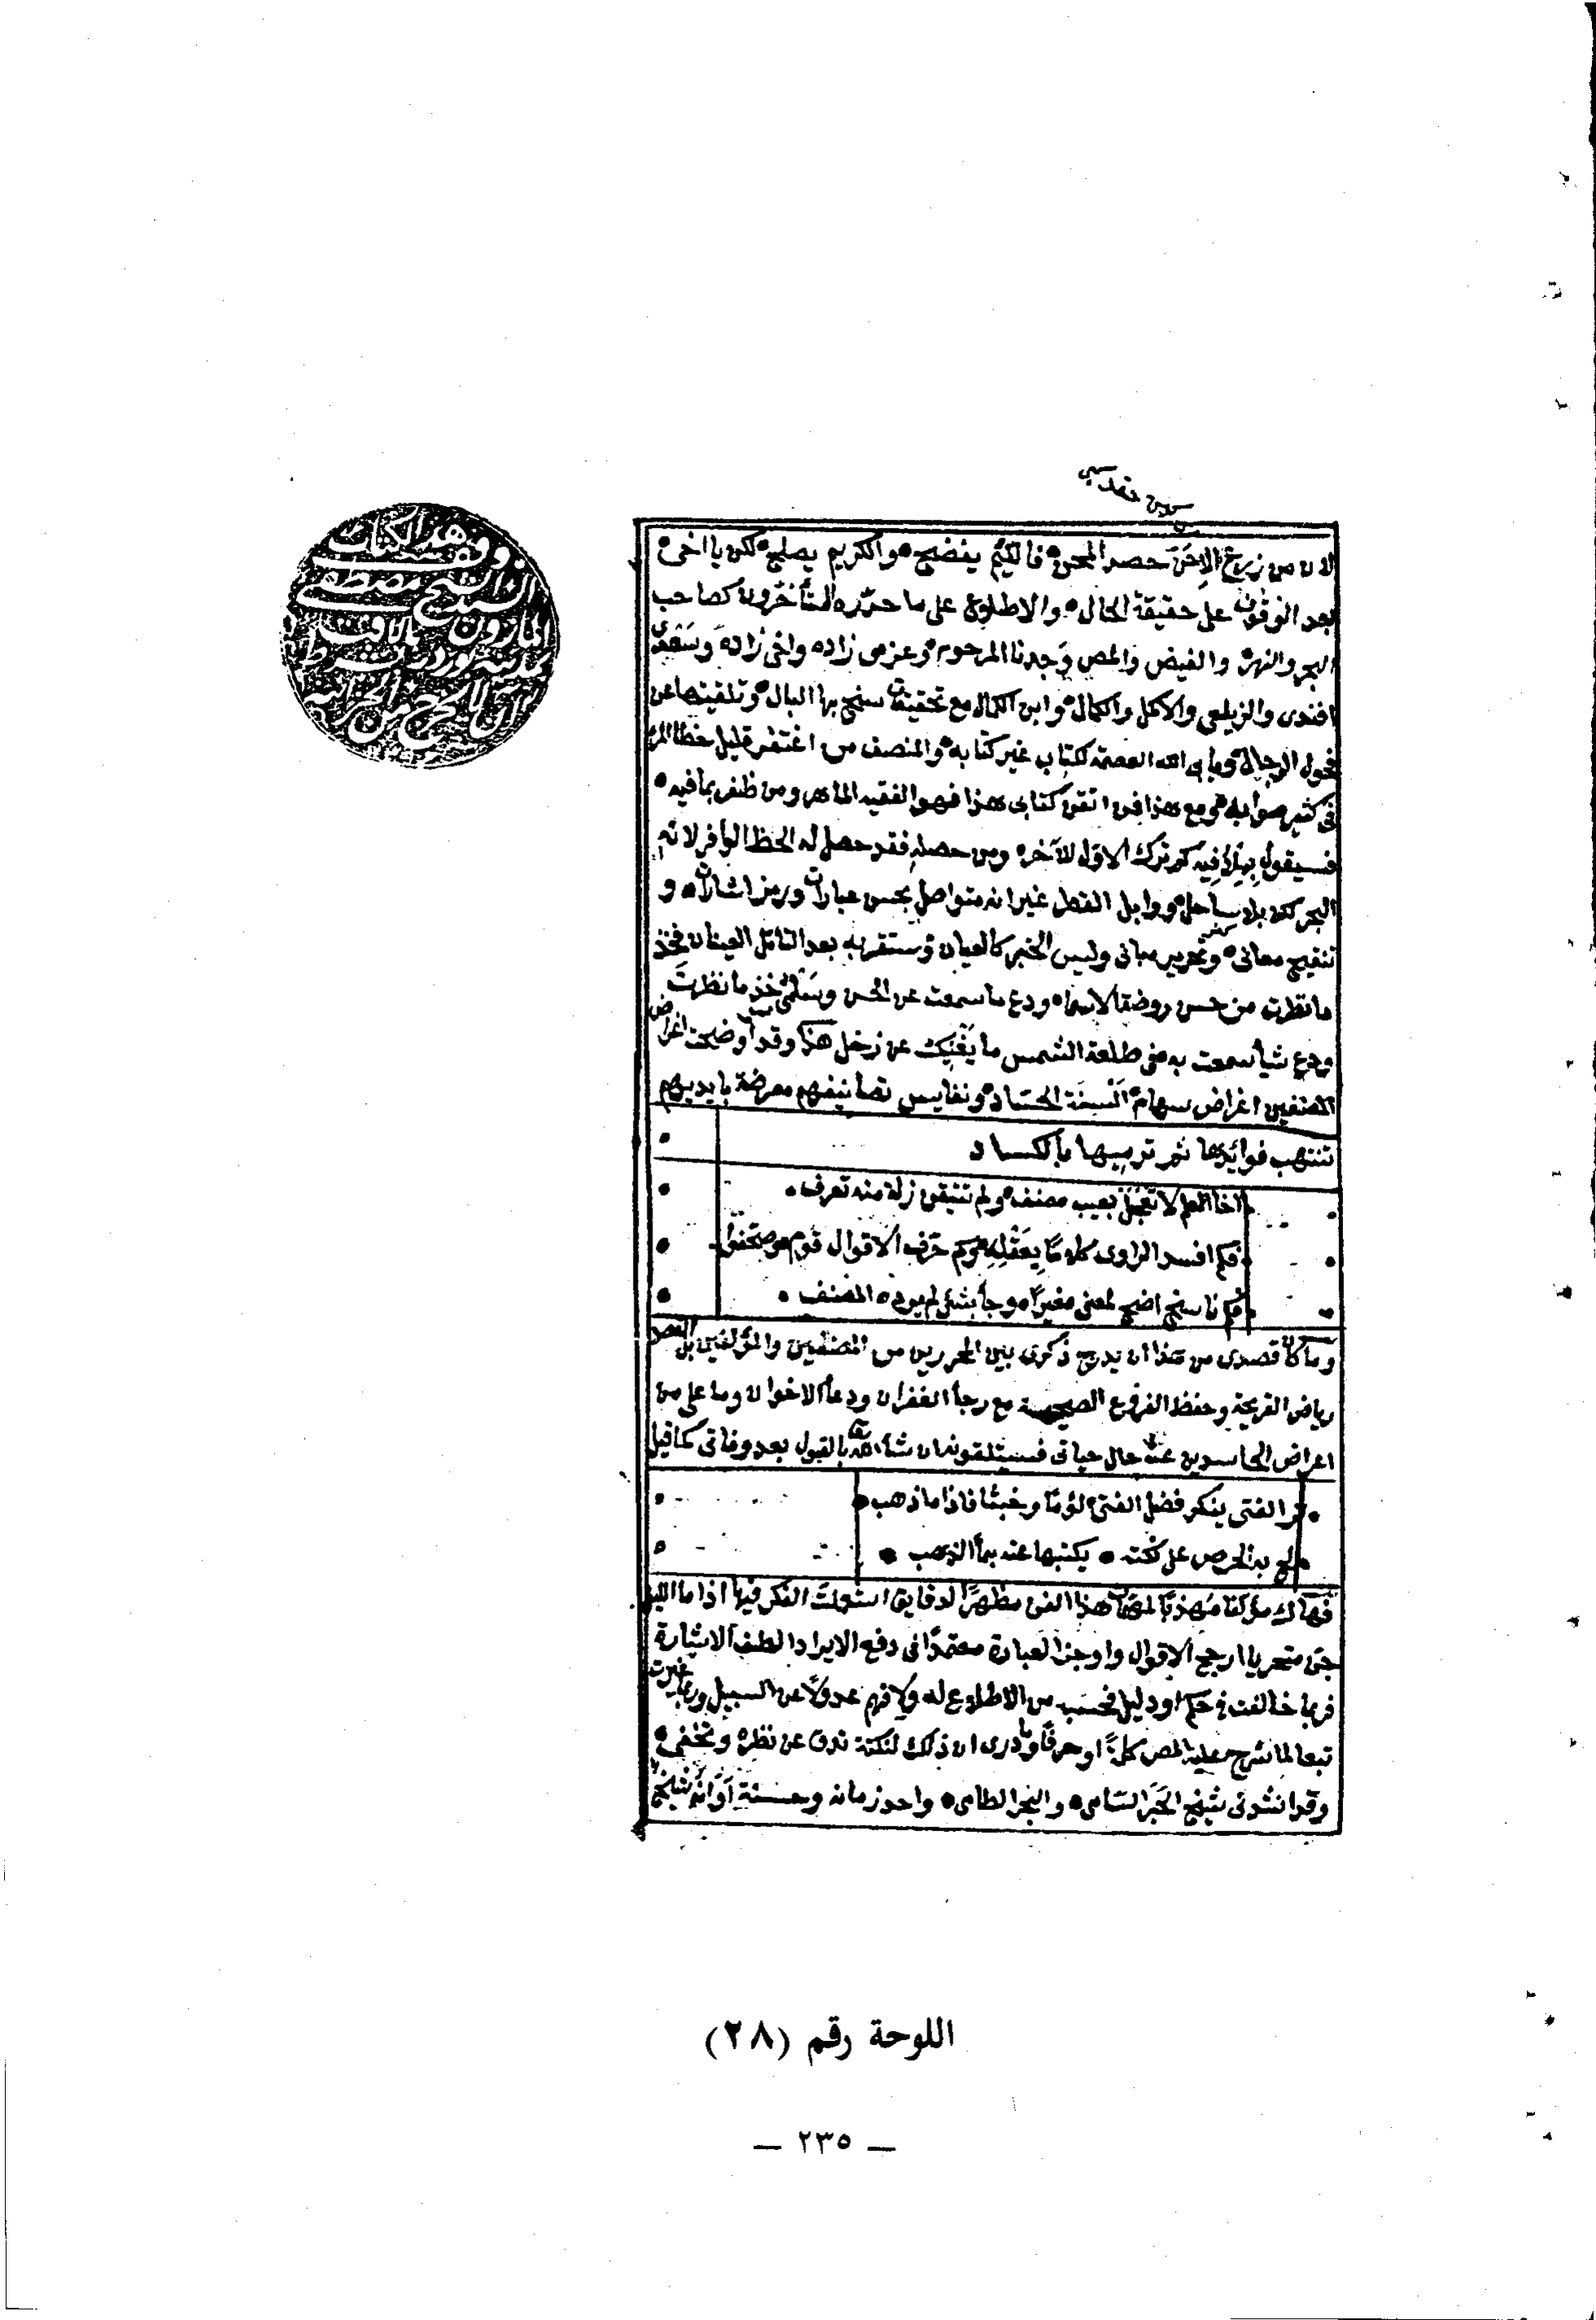 لان من زرع الإحن حصد المحن فاللئيم يفضح والكريم يصلح لكن يا اخى
بعد الوقوف على حقيقة الحال والاطلاع على ما حرره المتأخرون كصاحب
البحر والنهر والفيض والمص وجدنا المرحوم وعزمى زاده واخى زاده وسعدى
افندى والزيلعى والاكمل والكمال وابن الكمال مع تحقيقات سنح بها البال وتلقيتها عن
فحول الرجال ويابى الله العصمة لكتاب غير كتابه والمنصف من اغتفر قليل خطا المرء
فى كثير صوابه ومع هذا فمن اتقن كتابى هذا فهو الفقيه الماهر ومن ظفر بما فيه
فسيقول بملا فيه كم ترك الاول للآخر ومن حصله فقد حصل له الحظ الوافر لانه
البحر لكن بلا ساحل ووابل القطر غير انه متواصل بحسن عبارات ورمز اشارات و
تنقيح معانى وتحرير مبانى وليس الخبر كالعيان وستقر به بعد التامل العينان فخذ
ما نظرت من حسن روضه الاسما ودع ما سمعت عن الحسن وسلمى خذ ما نظرت
ودع شيأ سمعت به فى طلعة الشمس ما يغنيك عن زحل هذا وقد اضحت اعراض
المصنفين اغراض سهام السنة الحساد ونفايس تصانيفهم معرضة بايديهم
تنتهب فوائدها ثم ترميها بالكساد
اخا العلم لا تعجل بعيب مصنف ولم تتيقن زلة منه تعرف
فكم افسد الراوى كلاما بعقله وكم حرف الاقوال قوم وصحفوا
فكم ناسخ اضحى لمعنى مغيرا وجأ بشئ لم يرده المصنف
وما كان قصدى من هذا ان يدرج ذكرى بين المحررين من المصنفين والمؤلفين بل القصد
رياض القريحة وحفظ الفروع الصحيحة مع رجأ الغفران ودعأ الاخوان وما على من
اعراض الحاسدين عنه حال حياتى فسيتلقونه ان شأ الله تعالى بالقبول بعد وفاتى كما قيل
ترا الفتى ينكر فضل الفتى لؤما وخبثا فاذا ما ذهب
لج به الحرص على نكتة يكتبها عنه بمأ الذهب
فهاك مؤلفا مهذبا لمهمات هذا الفن مظهرا لدقايق استعملت الفكر فيها اذا ما الليل
جن متحريا ارجح الاقوال واوجز العبارة معتمدا فى دفع الايراد الطف الاشارة
فربما خالفت فى حكم او دليل فحسبه من لا اطلاع له ولا فهم عدولا عن السبيل وربما غيرت
تبعا لما شرح عليه المص كلمة او حرفا وما درى ان ذلك لنكتة تدق عن نظره وتخفى
وقد انشدنى شيخى الحبر السامى والبحر الطامى واحد زمانه وحسنة اوانه شيخ
وقف هذا الكتاب
الشيخ مصطفى
اللوحة رقم (٢٨)
— ٢٣٥ —